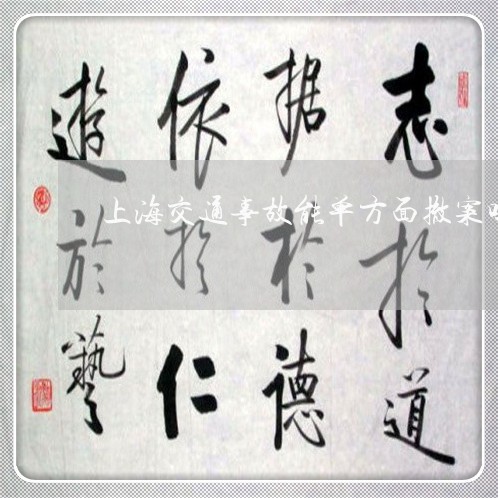 志於道
据於德
依於仁
遊於藝
上海交通事故能单方面撤案